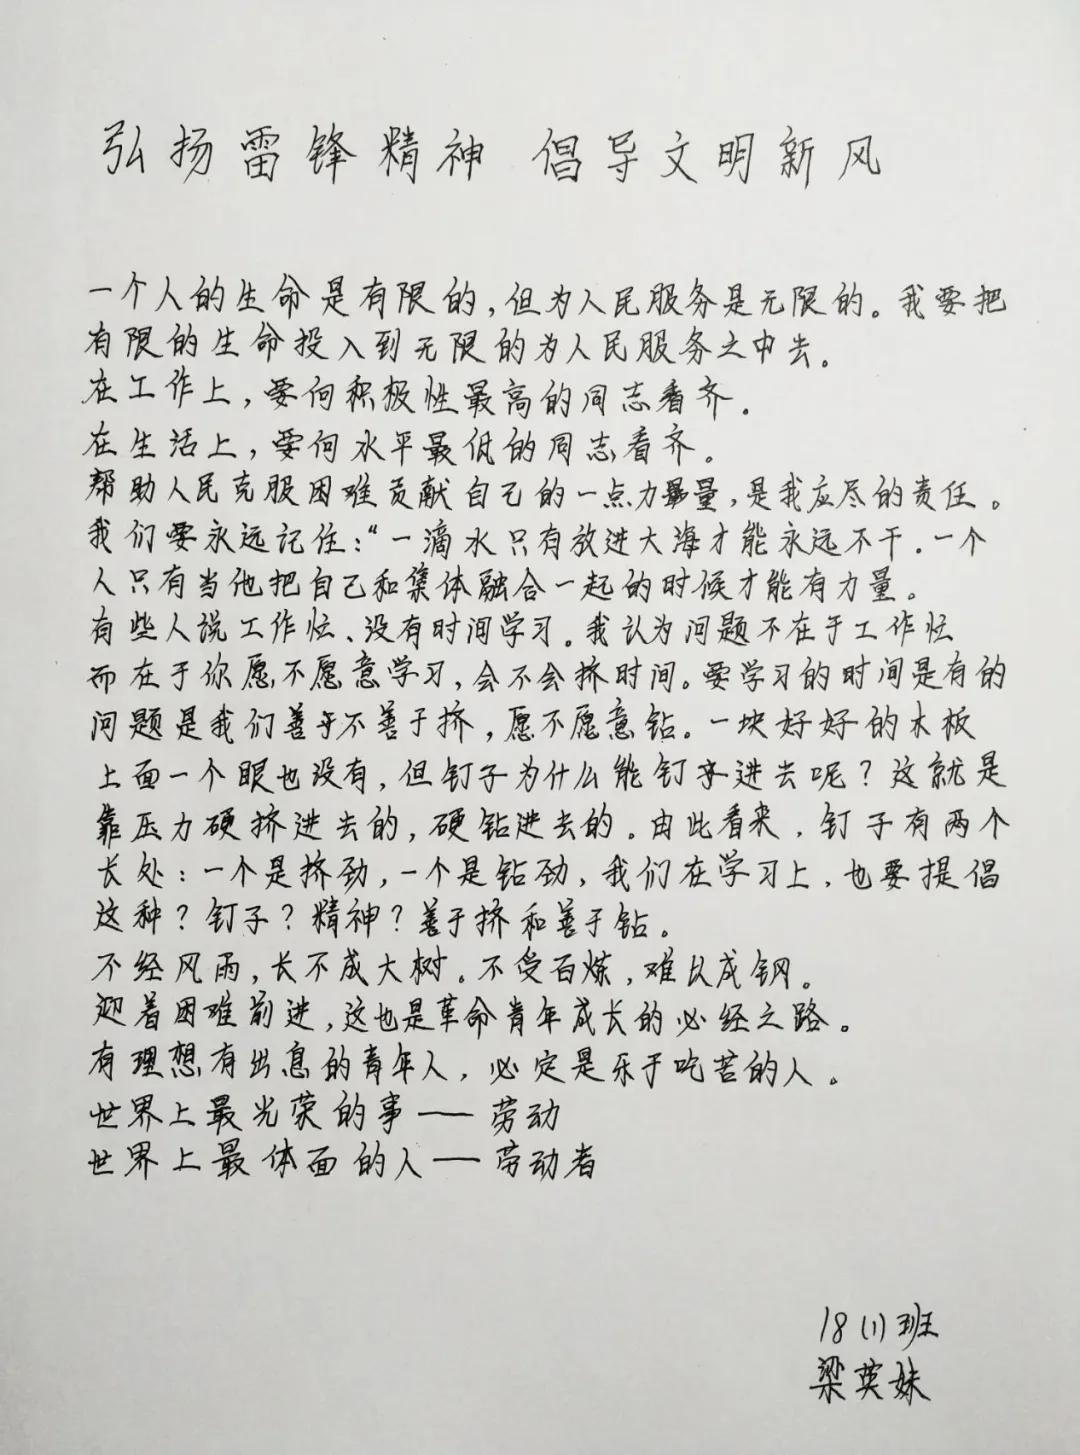 弘扬雷锋精神 倡导文明新风
一个人的生命是有限的,但为人民服务是无限的。我要把
有限的生命投入到无限的为人民服务之中去。
在工作上,要向积极性最高的同志看齐。
在生活上,要向水平最低的同志看齐。
帮助人民克服困难贡献自己的一点力量,是我应尽的责任。
我们要永远记住:“一滴水只有放进大海才能永远不干.一个
人只有当他把自己和集体融合一起的时候才能有力量。
有些人说工作忙、没有时间学习。我认为问题不在于工作忙
而在于你愿不愿意学习,会不会挤时间。要学习的时间是有的
问题是我们善于不善于挤,愿不愿意钻。一块好好的木板
上面一个眼也没有,但钉子为什么能钉进去呢?这就是
靠压力硬挤进去的,硬钻进去的。由此看来,钉子有两个
长处:一个是挤劲,一个是钻劲,我们在学习上,也要提倡
这种?钉子?精神?善于挤和善于钻。
不经风雨,长不成大树。不受百炼,难以成钢。
迎着困难前进,这也是革命青年成长的必经之路。
有理想有出息的青年人,必定是乐于吃苦的人。
世界上最光荣的事——劳动
世界上最体面的人——劳动者
18(1)班
梁英妹